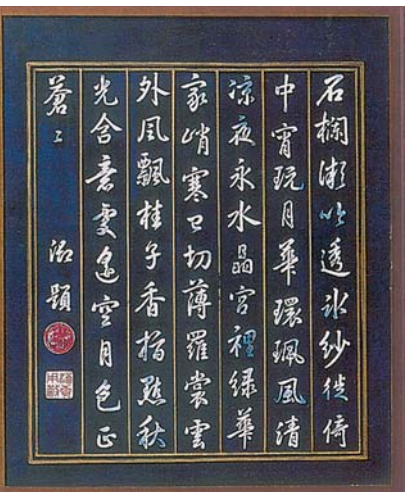 石欄漸透冰紗徙倚
中宵玩月華環珮風清
涼夜永水晶宮裡綠華
家峭寒已切薄羅裳雲
外風飄桂子香指點秋
光含意處遙空月色正
蒼〻 御題